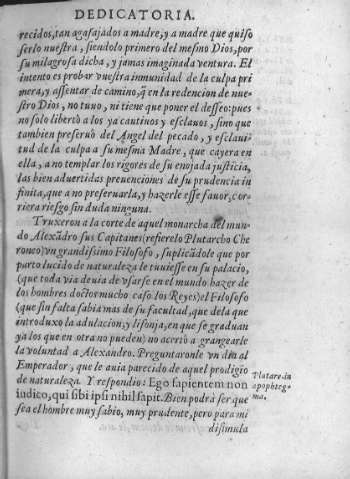 DEDICATORIA.
recidos, tan agasajados a madre, y a madre que quiso
serlo nuestra, siendolo primero del mesmo Dios, por
su milagrosa dicha, y jamas imaginada ventura. El
intento es probar vuestra inmunidad de la culpa pri
mera, y assentar de camino, q̃ en la redencion de nue-
stro Dios, no tuvo, ni tiene que poner el desseo: pues
no solo libertò a los ya cautivos y esclavos, sino que
tambien preseruò del Angel del pecado, y esclaui
tud de la culpa a su mesma Madre, que cayera en
ella, a no templar los rigores de su enojada justicia,
las bien aduertidas preuenciones de su prudencia in
finita, que a no preseruarla, y hazerle esse fauor, cor-
riera riesgo sin duda ninguna.
Truxeron a la corte de aquel monarcha del mun-
do Alexãdro sus Capitanes (refierelo Plutarcho Che
roneo) vn grandissimo Filosofo, suplicãdole que por
parto lucido de naturaleza le tuuiesse en su palacio,
(que toda via deuia de vsarse en el mundo hazer de
los hombres doctos mucho caso los Reyes) el Filosofo
(que sin falta sabia mas de su facultad, que de la que
introduxo la adulacion, y lisonja, en que se graduan
ya los que en otra no pueden) no acertò a grangearle
la voluntad a Alexandro. Preguntaronle vn dia al
Emperador, que le auia parecido de aquel prodigio
de naturaleza. Y respondio: Ego sapientem non
iudico, qui sibi ipsi nihil sapit. Bien podrà ser que
sea el hombre muy sabio, muy prudente, pero para mi
disimula
Plutarc. in
apophteg-
ma.